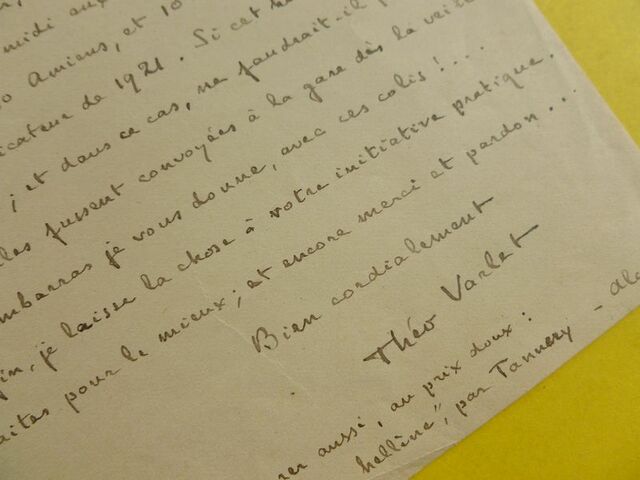 midi aux
Amiens, et 10
icateur de 1921. Si cet
; et dans ce cas, ne faudrait-il p
les fussent convoyées à la gare dès la veille
mbarras je vous donne, avec ces colis!...
fin, je laisse la chose à votre initiative pratique.
aites pour le mieux; et encore merci et pardon...
Bien cordialement
Théo Varlet
rer aussi, au prix doux:
hellène", par Tannery - Alc